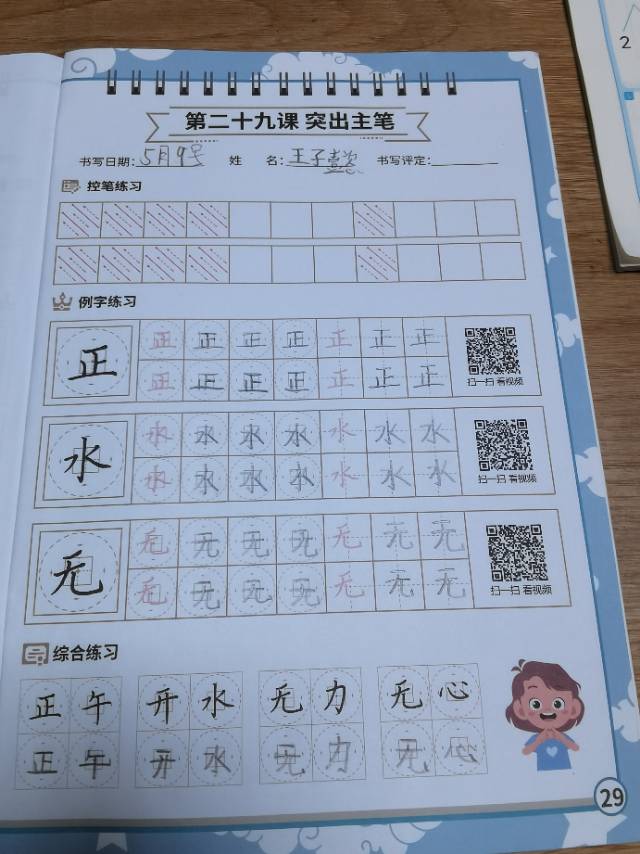 第二十九课 突出主笔
书写日期：5月9号 姓 名：王子懿 书写评定：
控笔练习
例字练习
正 正 正 正 正 正 正 正
正 正 正 正 正 正 正
扫一扫 看视频
水 水 水 水 水 水 水 水
水 水 水 水 水 水 水
扫一扫 看视频
无 无 无 无 无 无 无 无
无 无 无 无 无 无 无
扫一扫 看视频
综合练习
正 午 开 水 无 力 无 心
正 午 开 水 无 力 无 心
29
2